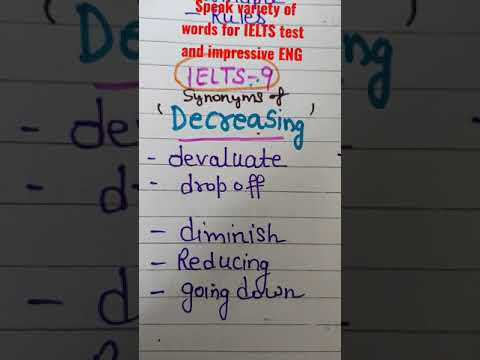 Rules
Speak variety of
words for IELTS test
and impressive ENG
IELTS-9
Synonyms of
' Decreasing '
- devaluate
- drop off
- diminish
- Reducing
- going down